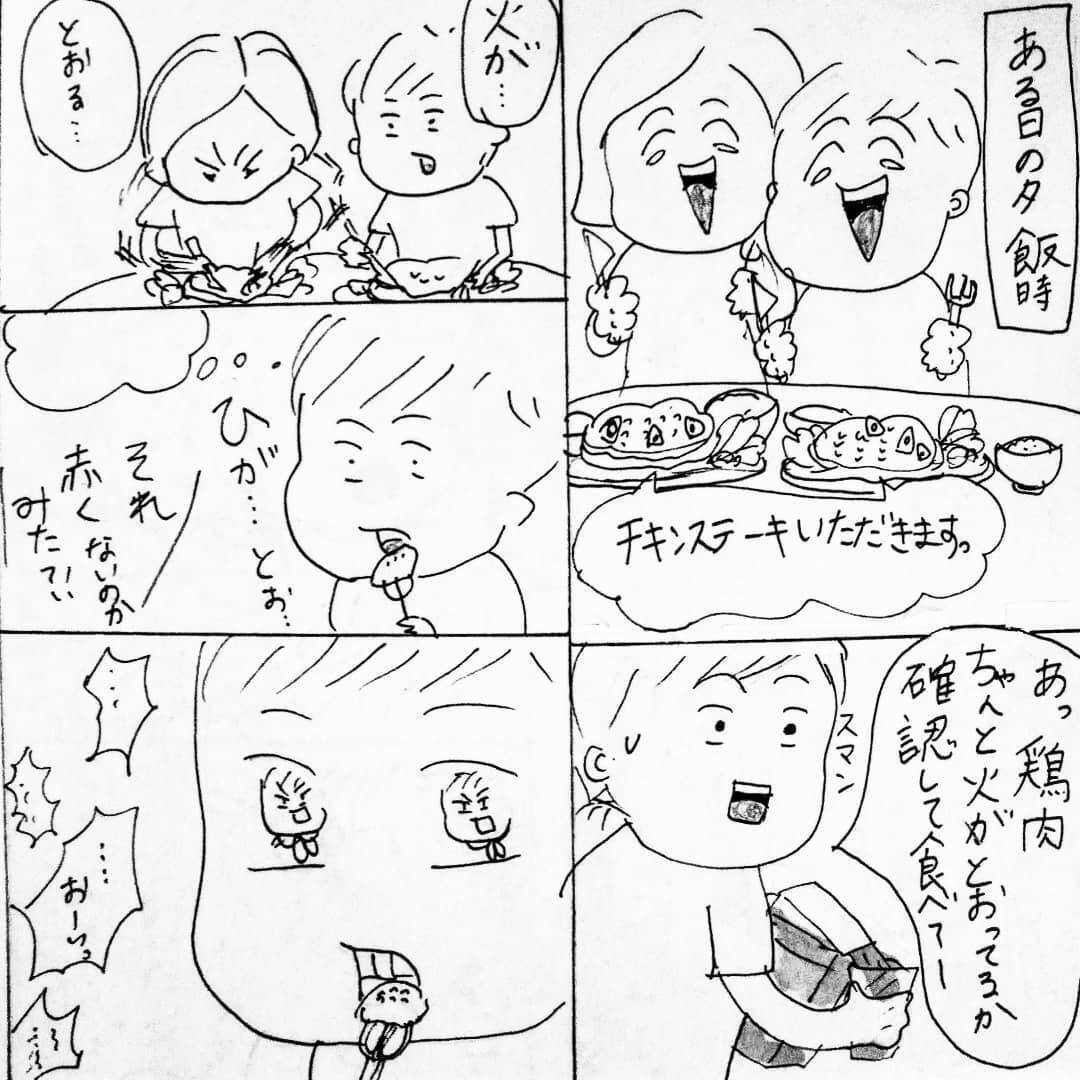 ある日の夕飯時
チキンステーキいただきますっ
あっ 鶏肉
ちゃんと火がとおってるか
確認して食べてー
スマン
火が…
とおる…
ひが…とお…
それ
赤くないのか
みたてい
…
…おーいっ